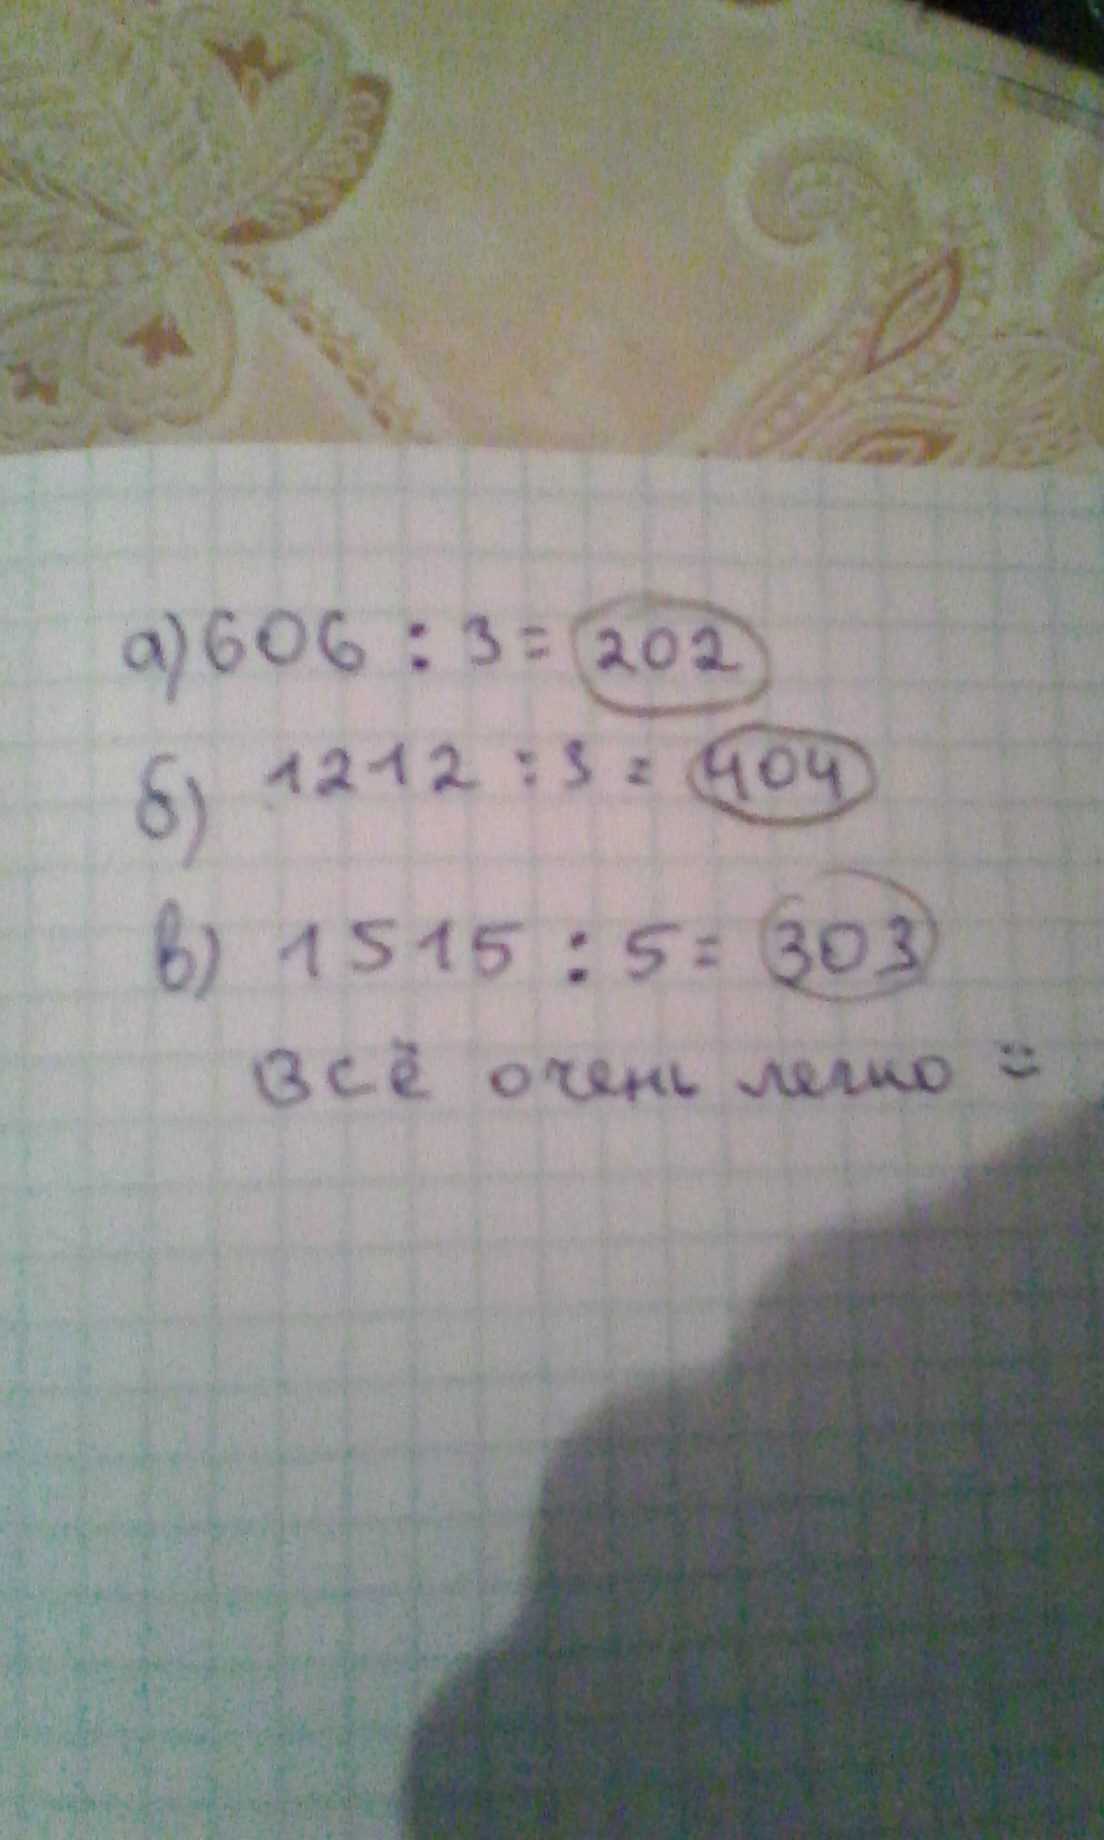 а) 606 : 3 = 202
б) 1212 : 3 = 404
в) 1515 : 5 = 303
Всё очень легко =